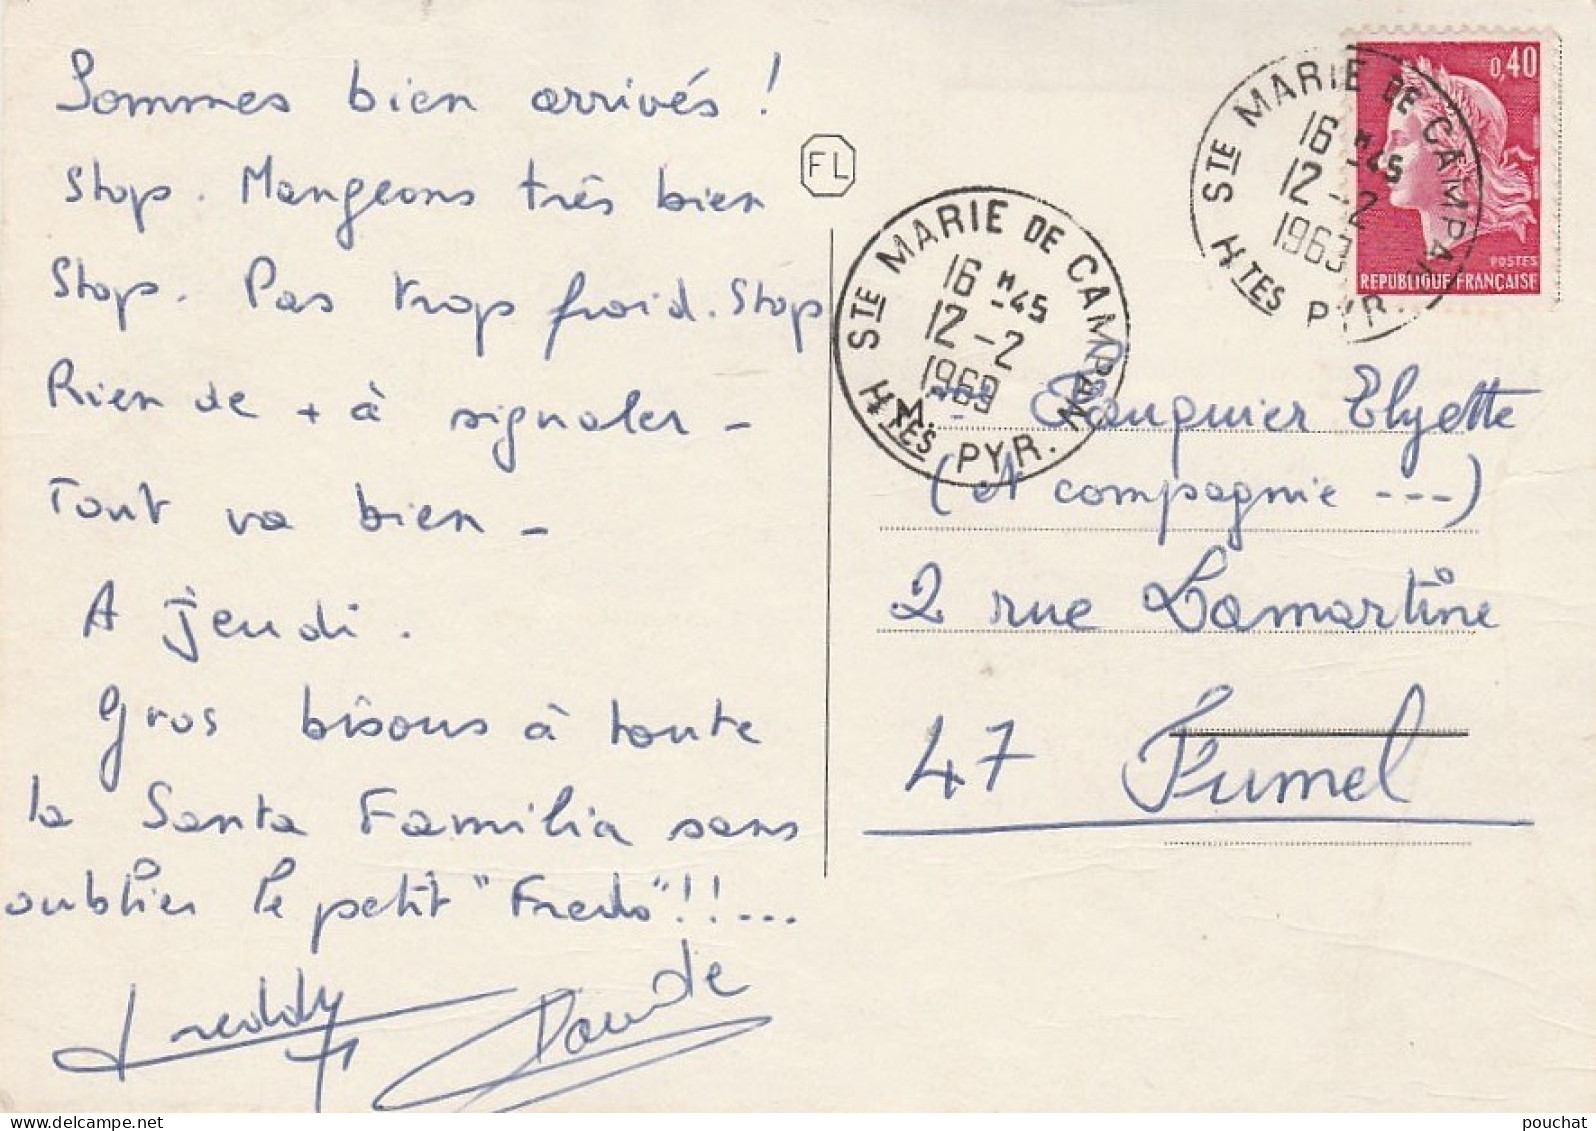 Sommes bien arrivés !
Stop. Mangeons très bien
Stop. Pas trop froid. Stop
Rien de + à signaler -
Tout va bien -
A jeudi.
Gros bisous à toute
la Santa Familia sans
oublier le petit "Fredo"!!...
Freddy
FL
STE MARIE DE CAMPAN
16 H -45
12 -2
1969
HTES PYR.
STE MARIE DE CAMPAN
16 H -45
12 -2
1969
HTES PYR.
0,40
POSTES
REPUBLIQUE FRANÇAISE
M. Elyette
(et compagnie ---)
2 rue Lamartine
47 Fumel
www.delcampe.net
pouchat